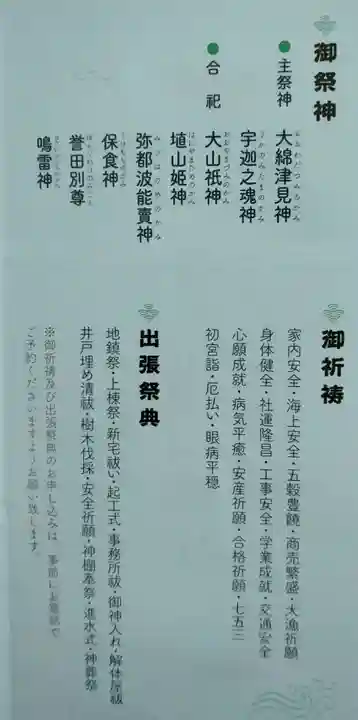 御祭神
●主祭神 大綿津見神
宇迦之魂神
●合祀 大山祇神
埴山姫神
弥都波能賣神
保食神
誉田別尊
鳴雷神
御祈祷
家内安全・海上安全・五穀豊饒・商売繁盛・大漁祈願
身体健全・社運隆昌・工事安全・学業成就・交通安全
心願成就・病気平癒・安産祈願・合格祈願・七五三
初宮詣・厄払い・眼病平穏
出張祭典
地鎮祭・上棟祭・新宅祓い・起工式・事務所祓・御神入れ・解体屋祓
井戸埋め清祓・樹木伐採・安全祈願・神棚奉祭・進水式・神葬祭
※御祈祷及び出張祭典のお申し込みは、事前にお電話で
ご予約くださいますようお願い致します。